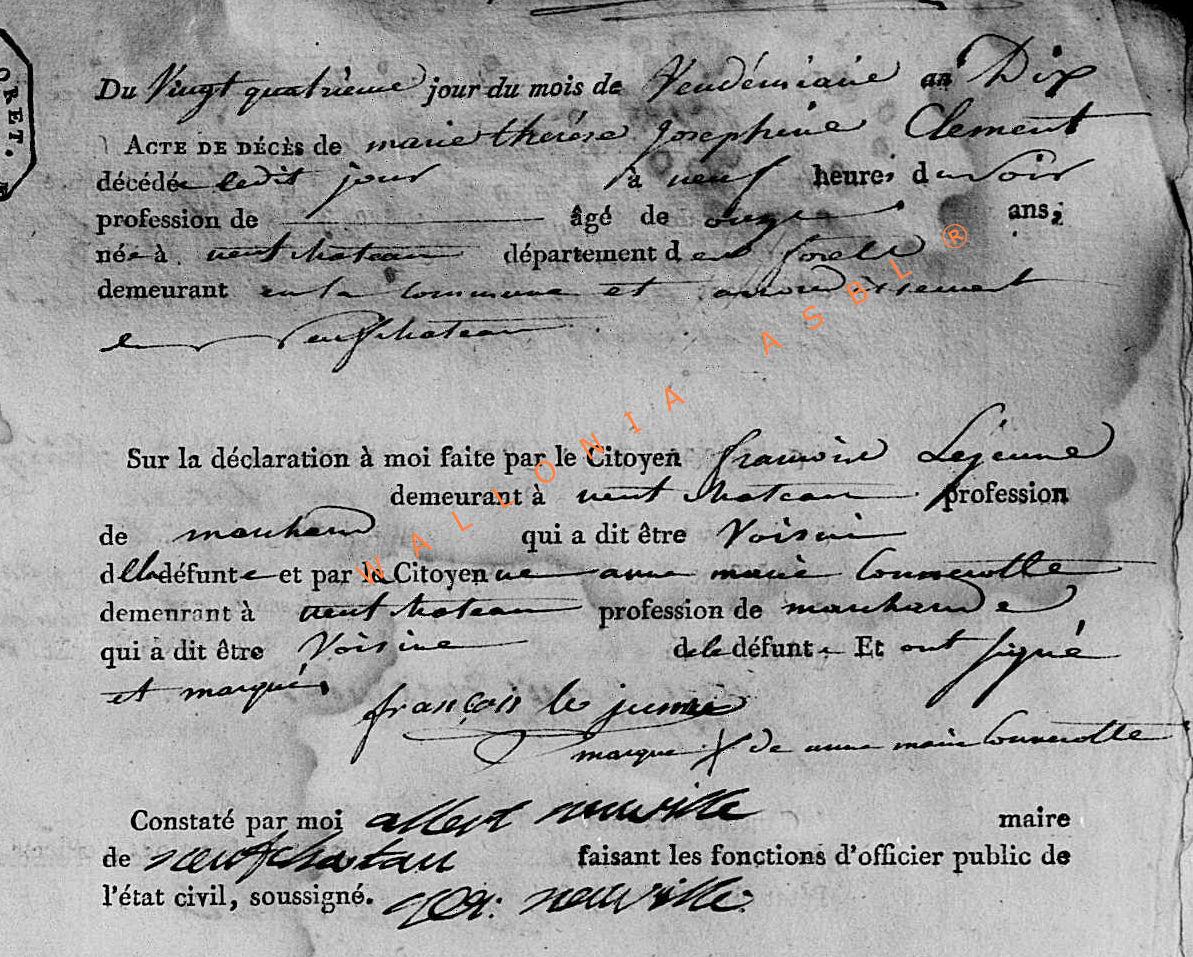 Du Vingt quatrième jour du mois de Vendémiaire an Dix
ACTE DE DÉCÈS de marie thérése Josephine Clement
décédée ledit jour à neuf heures du soir
profession de âgé de onze ans,
née à neufchateau département des forets
demeurant en la commune et arrondissement
de Neufchateau
Sur la déclaration à moi faite par le Citoyen francois Lejeune
demeurant à neufchateau profession
de marchand qui a dit être Voisin
de la défunte et par la Citoyenne anne marie Connerotte
demeurant à neufchateau profession de marchande
qui a dit être Voisine de la défunte Et ont signé
et marqué
françois le jeune
marque X de anne marie Connerotte
Constaté par moi albert neuville maire
de neufchatau faisant les fonctions d'officier public de
l'état civil, soussigné. neuville
WALLONIA ASBL ®